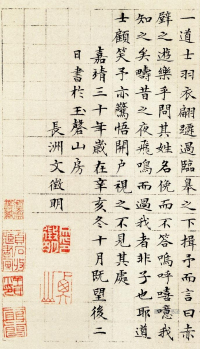 一道士羽衣翩躚過臨皋之下揖予而言曰赤
壁之遊樂乎問其姓名俛而不答嗚呼噫嘻我
知之矣疇昔之夜飛鳴而過我者非子也耶道
士顧笑予亦驚悟開戶視之不見其處
嘉靖三十年歲在辛亥冬十月既望後二
日書於玉磬山房
長洲文徵明